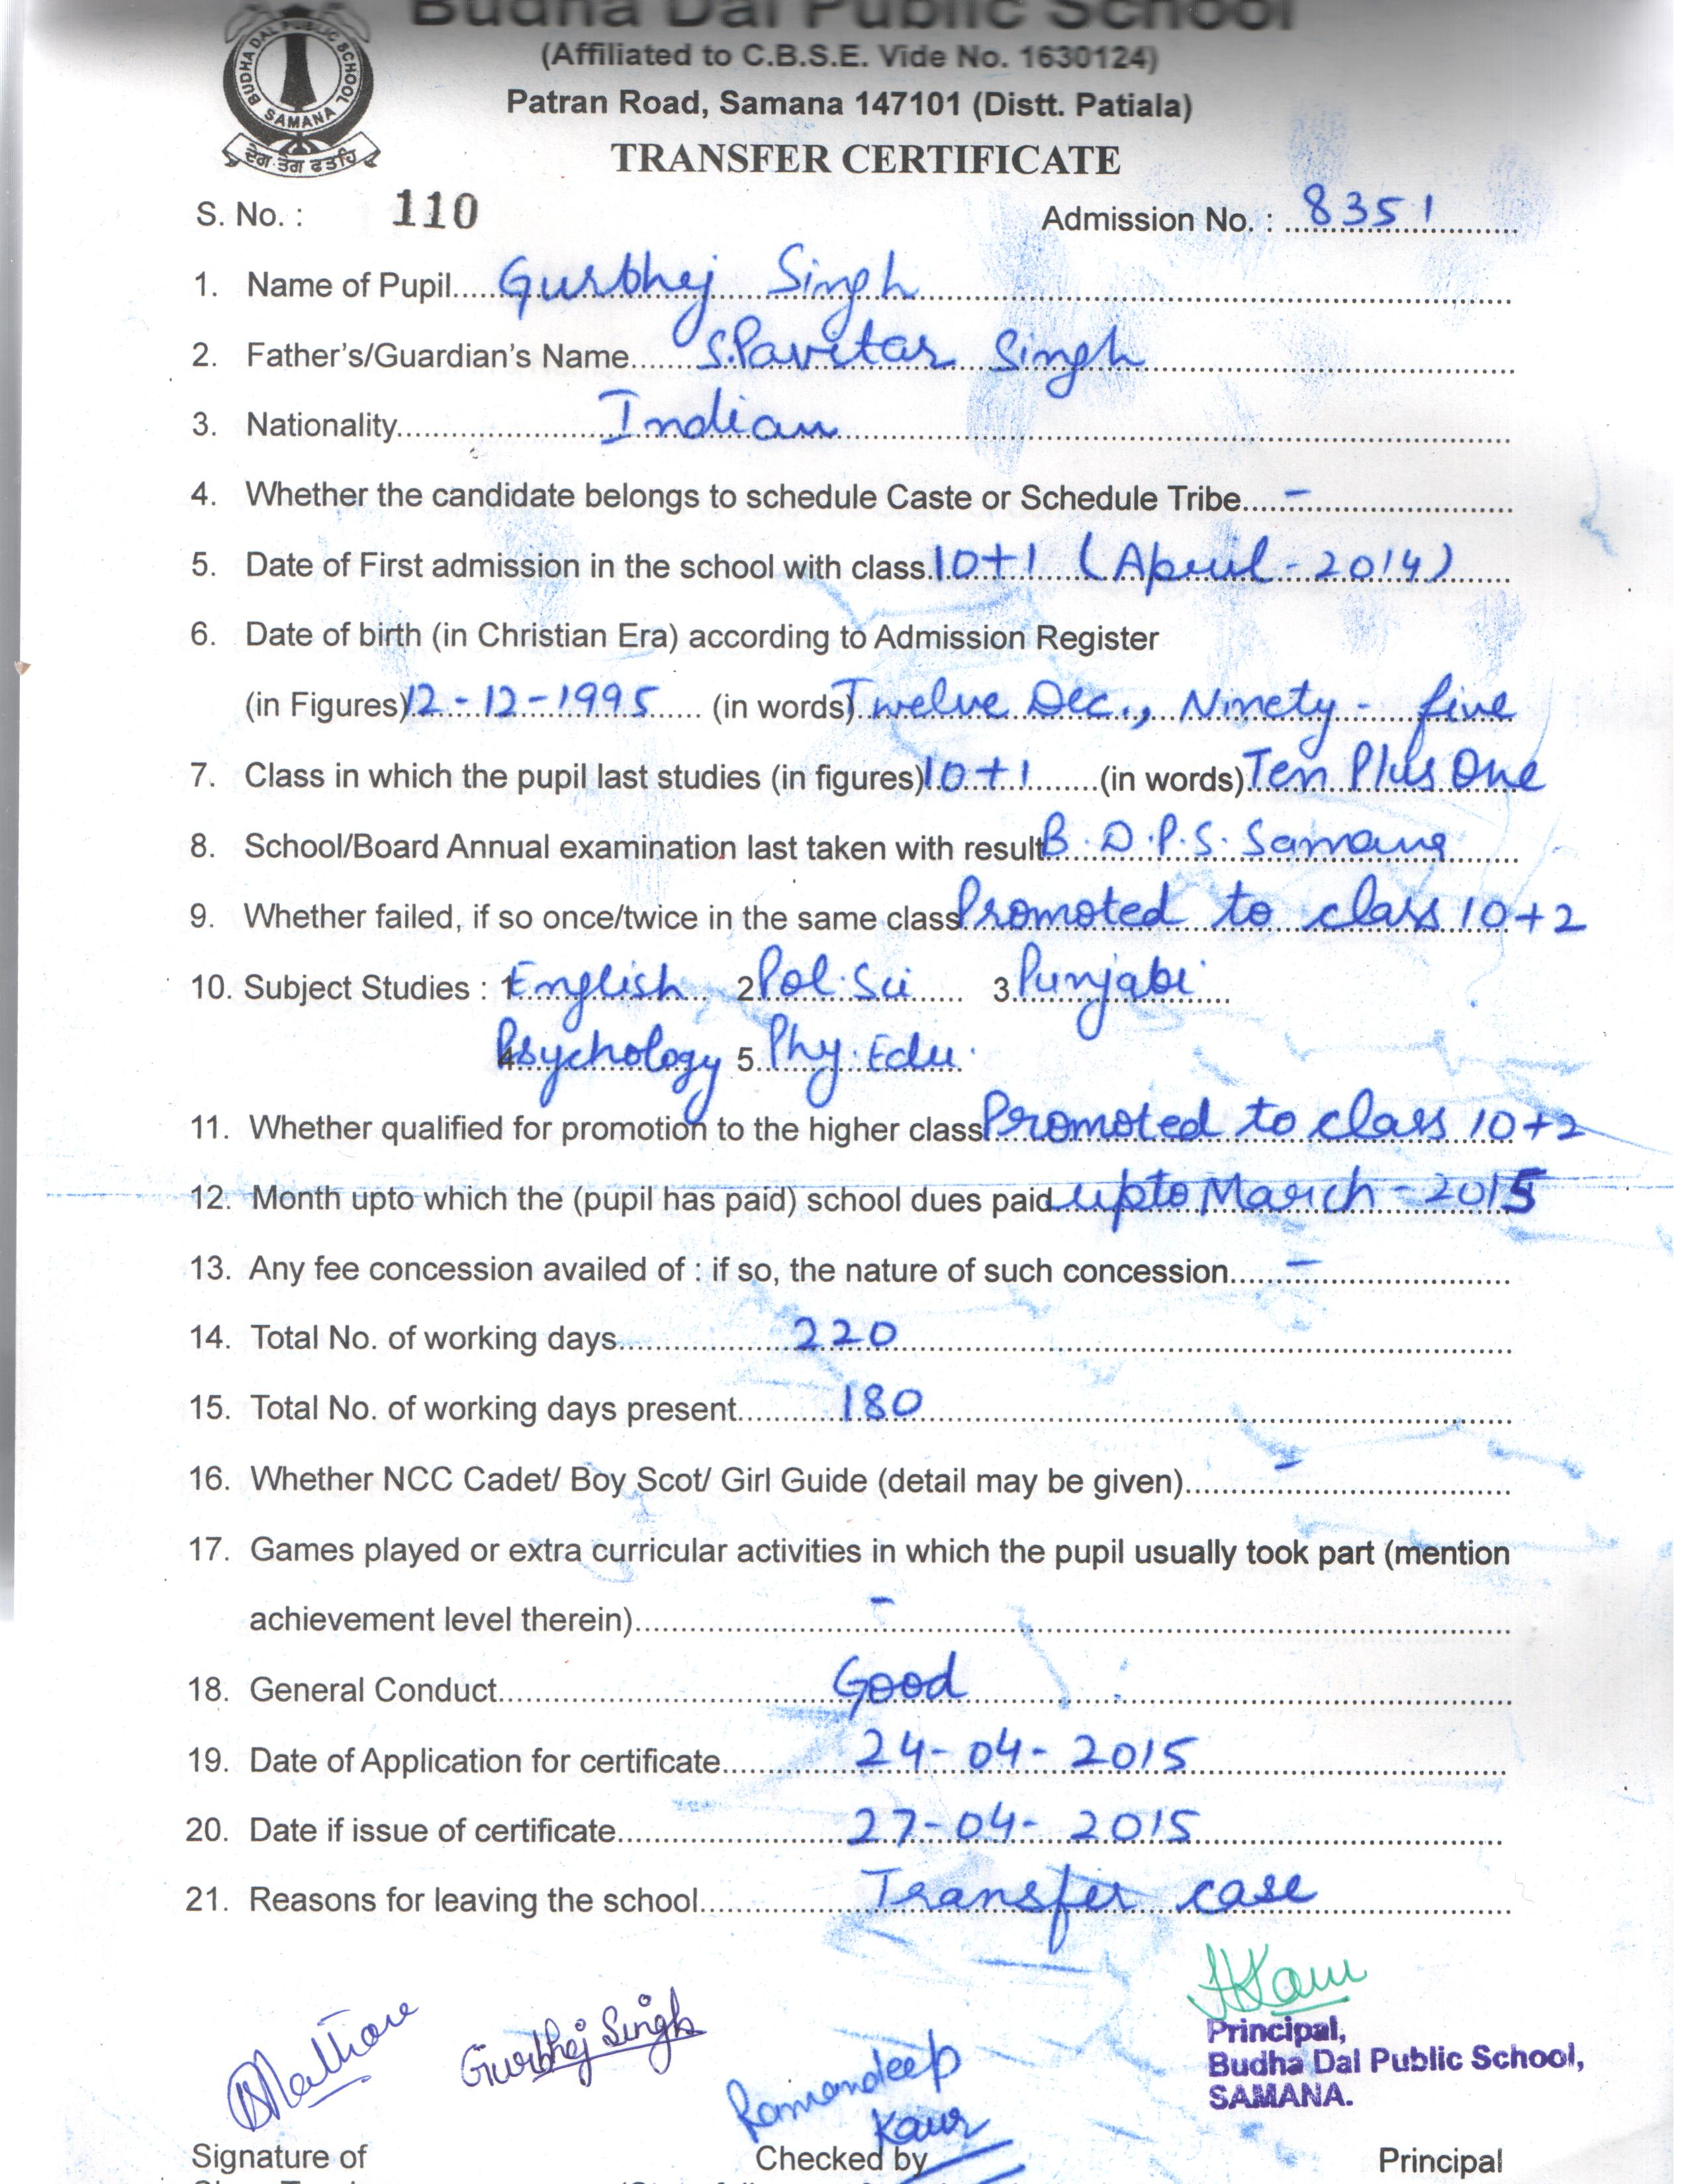 Budha Dal Public School
(Affiliated to C.B.S.E. Vide No. 1630124)
Patran Road, Samana 147101 (Distt. Patiala)
BUDHA DAL PUBLIC SCHOOL
SAMANA
ਦੇਗ ਤੇਗ ਫਤਹਿ
TRANSFER CERTIFICATE
S. No. : 110 Admission No. : 8351
1. Name of Pupil Gurbhej Singh
2. Father's/Guardian's Name S.Pavitar Singh
3. Nationality Indian
4. Whether the candidate belongs to schedule Caste or Schedule Tribe -
5. Date of First admission in the school with class 10+1 (April - 2014)
6. Date of birth (in Christian Era) according to Admission Register
(in Figures) 12-12-1995 (in words) Twelve Dec., Ninety - five
7. Class in which the pupil last studies (in figures) 10+1 (in words) Ten Plus One
8. School/Board Annual examination last taken with result B.D.P.S. Samana
9. Whether failed, if so once/twice in the same class Promoted to class 10+2
10. Subject Studies : 1. English 2. Pol. Sci 3. Punjabi
4. Psychology 5. Phy. Edu.
11. Whether qualified for promotion to the higher class Promoted to class 10+2
12. Month upto which the (pupil has paid) school dues paid upto March - 2015
13. Any fee concession availed of : if so, the nature of such concession -
14. Total No. of working days 220
15. Total No. of working days present 180
16. Whether NCC Cadet/ Boy Scot/ Girl Guide (detail may be given) -
17. Games played or extra curricular activities in which the pupil usually took part (mention
achievement level therein) -
18. General Conduct Good
19. Date of Application for certificate 24-04-2015
20. Date if issue of certificate 27-04-2015
21. Reasons for leaving the school Transfer case
Gurbhej Singh
Ramandeep
Kaur
Principal,
Budha Dal Public School,
SAMANA.
Signature of Checked by Principal